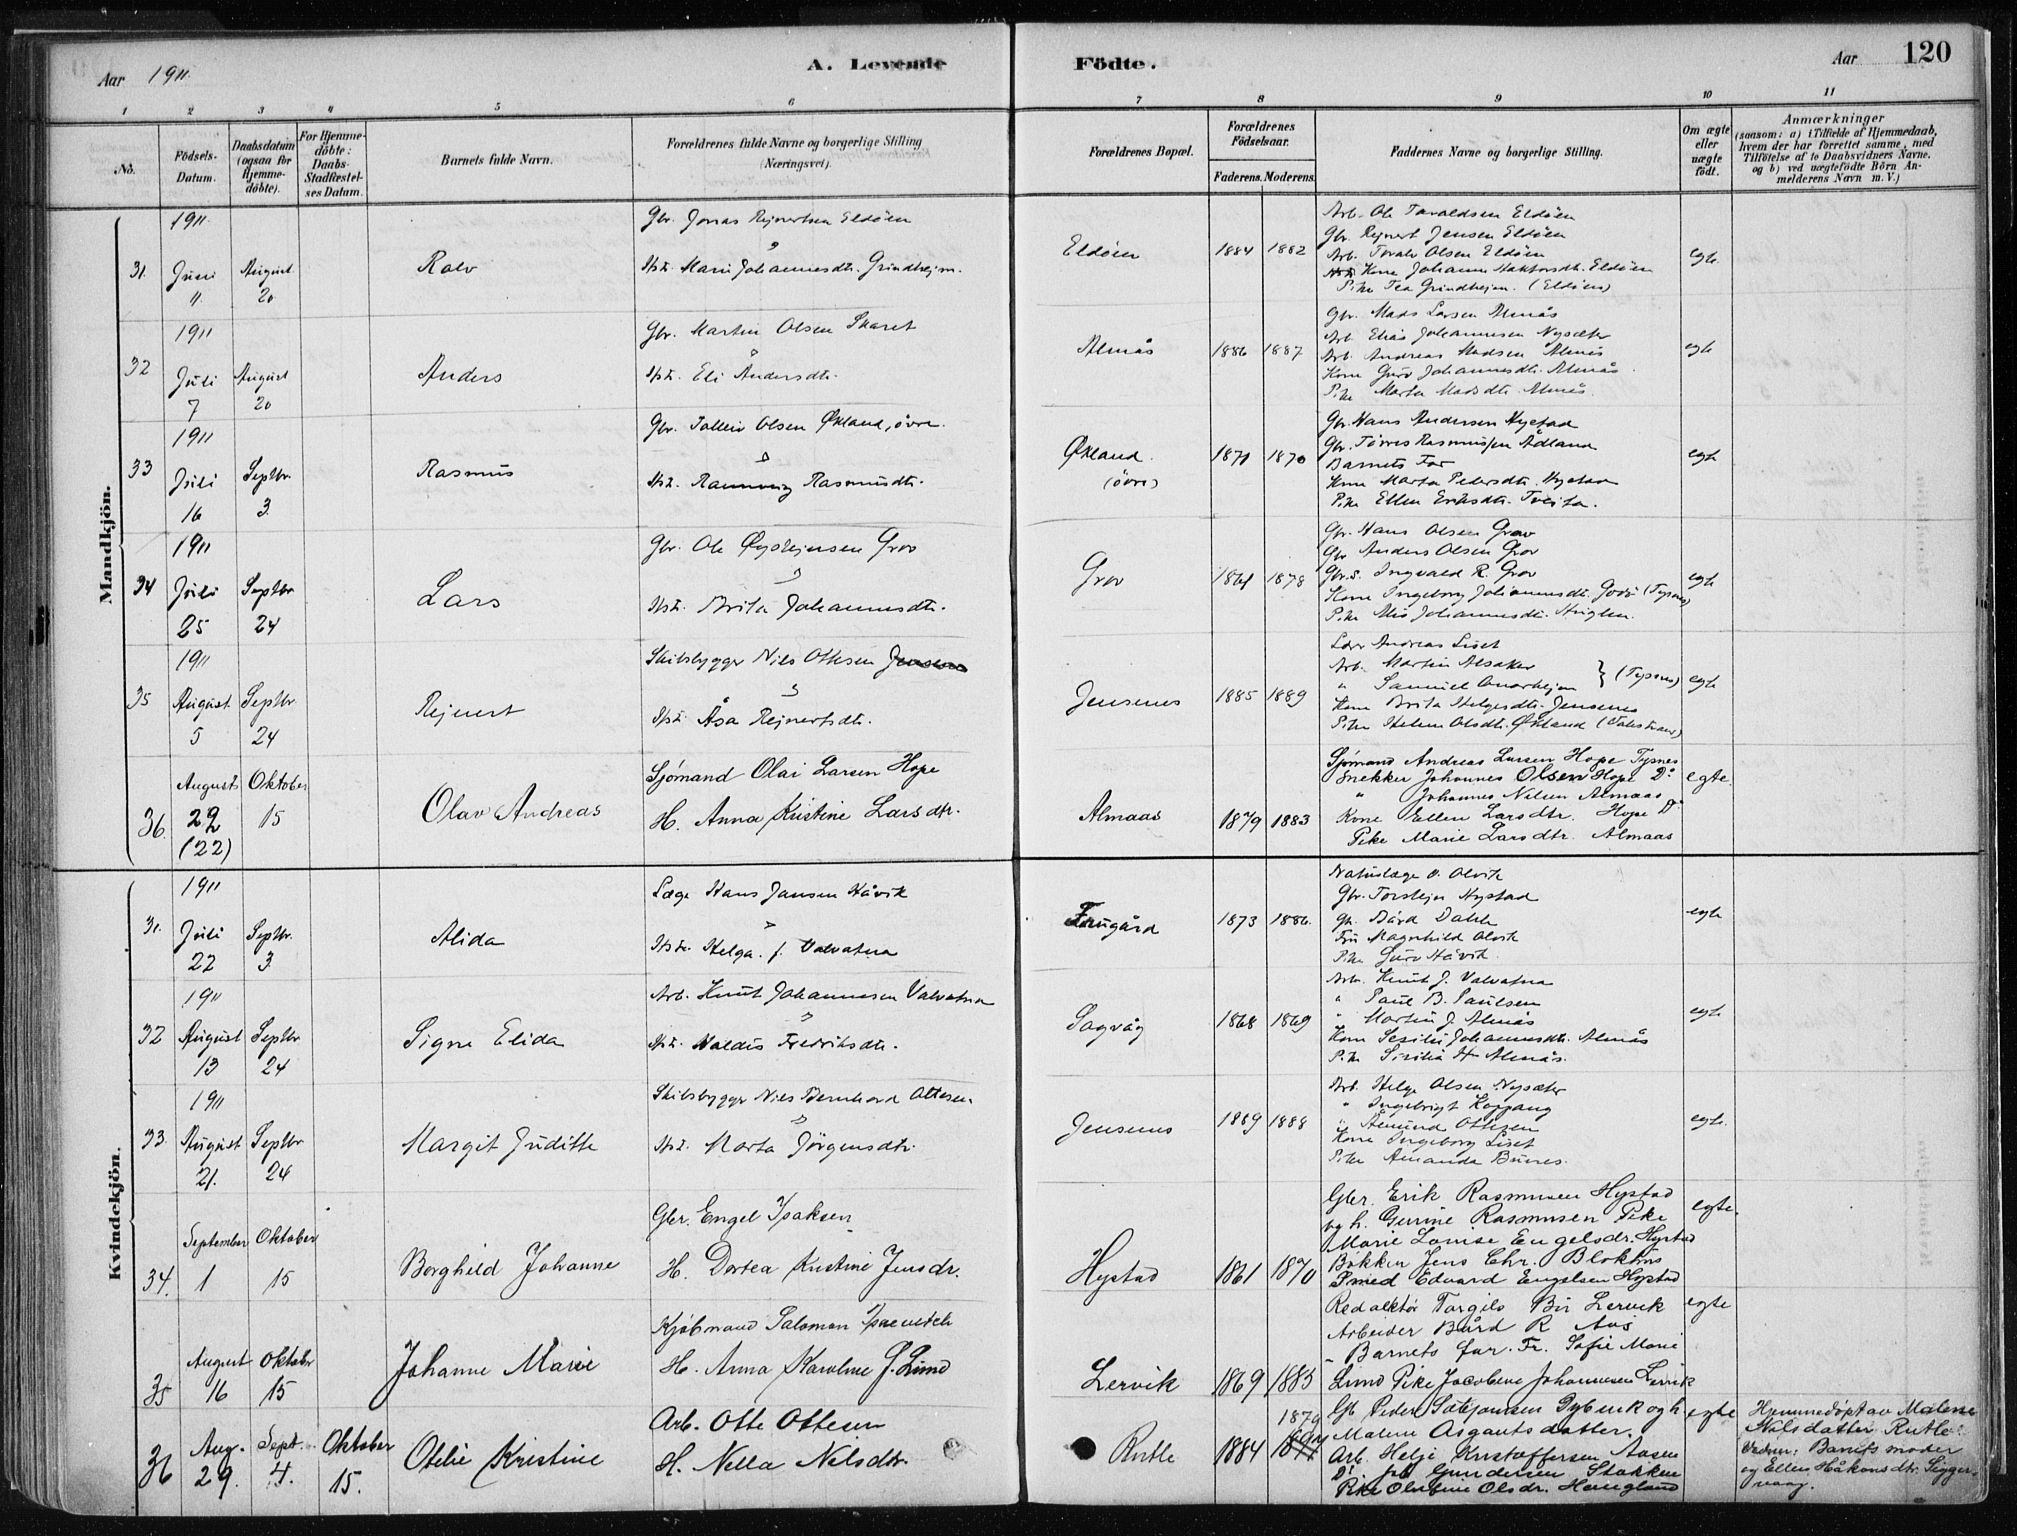 Aar 1911.
A. Levende
Födte.
Aar
120
1 2 3 4 5 6 7 8 9 10 11
No.
Födsels-Datum.
Daabsdatum (ogsaa for Hjemme-döbte).
For Hjemme-döbte: Daabs-Stadfæstel-ses Datum.
Barnets fulde Navn.
Forældrenes fulde Navne og borgerlige Stilling (Næringsvei).
Forældrenes Bopæl.
Forældrenes Födselsaar.
Faderens. Moderens.
Faddernes Navne og borgerlige Stilling.
Om ægte eller uægte födt.
Anmærkninger
(saasom: a) i Tilfælde af Hjemmedaab, hvem der har forrettet samme, med Tilföielse af to Daabsvidners Navne. og b) ved uægtefödte Börn An-melderens Navn m. V.)
Mandkjön.
1911
31. Juni 11 August 20
Ralv
Gbr. Jonas Rejnertsen Eldöen
Hst. Mari Johannesdtr. Grindhejm.
Eldöen 1884 1882
Arb. Ole Toraldsen Eldöen
Gbr. Rejnert Jensen Eldöen
Arb. Torale Olsen Eldöen
Kone Johanne Eldöen
Pike Tea Grindhejm (Eldöen)
egte
1911
32 Juli 7 August 20
Anders
Gbr. Martin Olsen Skaret
Hst. Eli Andersdtr.
Almås 1886 1887
Gbr. Mads Larsen Almås
Arb. Elias Johannesen Nysæter
Arb. Andreas Madsen Almås
Kone Guro Johannesdtr. Almås
Pike Marta Madsdtr. Almås.
egte
1911
33 Juli 16 Septbr. 3
Rasmus
Gbr. Tolleiv Olsen Økland, övre.
Hst. Rannveig Rasmusdtr.
Økland. (övre) 1871 1870
Gbr. Hans Andersen Hystad
Gbr. Törres Rasmussen Ådland
Barnets Far
Kone Marta Pedersdtr. Hystad
Pike Ellen Eriksdtr. Tveita.
egte
1911
34 Juli 25 Septbr 24
Lars
Gbr. Ole Öystejnsen Grov
Hst. Brita Johannesdtr.
Grov 1878
Gbr. Hans Olsen Grov
Gbr Anders Olsen Grov
Gbr.s. Ingvald R. Grov
Kone Ingeborg Johannesdtr. (Tysnes)
egte
1911
35 August 5 Septbr 24
Rejnert
Skibsbygger Nils Ottesen Jensenes
Hst. Åsa Rejnertsdtr.
Jensenes 1885 1889
Lærer Andreas Liset
Arb. Martin Alsaker
" Samuel (Tysnes)
Kone Brita Helgesdtr. Jensenes
Pike Helene Olsdtr. Økland
egte
36. August 29 (22) Oktober 15
Olav Andreas
Sjömand Olai Larsen Hope
H. Anna Kristine Larsdtr.
Almaas 1879 1883
Sjömand Andreas Larsen Hope Tysnes
Snekker Johannes Olsen Hope Do
" Johannes Nilsen Almaas
Kone Ellen Larsdtr. Hope Do
Pike Marie Larsdtr. Almaas
egte
Kvindekjön.
1911
31. Juli 22 Septbr. 3
Alida
Læge Hans Jansen Håvik
Hst. Helga f. Valvatna
Fru­gård 1873 1886.
Naturlæge O. Olvik
Gbr. Torstejn Hystad
Gbr. Bård Dahle
Fru Magnhild Olvik
Pike Guro Håvik.
egte
1911
32 August 13 Septbr 24
Signe Elida
Arb. Knut Johannesen Valvatna
Hst. Valdis Fredriksdtr.
Sagvåg 1868 1869
Arb. Knut J. Valvatna
" Paul B. Paulsen
" Martin J. Almås
Kone Sesilie Johannesdtr. Almås
Pike Sesilie H Almås.
egte
1911
33. August 21. Septbr 24
Margit Juditte
Skibsbygger Nils Bernhard Ottesen
Hst. Marta Jörgensdtr.
Jensenes 1889 1888
Arb. Helge Olsen Nysæter
" Ingebrigt Koppang
" Åmund Ottesen
Kone Ingeborg Liset
Pike Amanda Bunes.
egte.
34. September 1 Oktober 15
Borghild Johanne
Gbr. Engel Isaksen
H. Dortea Kristine Jensdr.
Hystad 1861 1870
Gbr. Erik Rasmusen Hystad
og h. Gurine Rasmusen Pike
Marie Louise Engelsdr. Hystad
Bökker Jens Chr. Blokhus
Smed Edvard Engelsen Hystad
egte.
35 August 16 Oktober 15
Johanne Marie
Kjöbmand Salomon
H. Anna Karoline J. Lund
Lervik 1869 1885
Redaktör Torgils Bö Lervik
Arbeider Bård R Aas
Barnets far. Fr. Sofie Marie
Lund Pike Jacobine Johannesen Lervik
egte
36 Aug. 29. Sept. 4. Oktober 15.
Otelie Kristine
Arb. Otte Ottesen
H. Nella Nelsdtr.
Rutle 1884 1879
Malene Asgautsdatter.
Arb. Helje Kristoffersen Aasen
Do. Gundersen Stokken
Pike Olsdr. Haugland
egte
Hjemmedöpt av Malene Nelsdatter Rutle.
Vidner: Barnets moder og Ellen Håkonsdtr. Siggervaag.